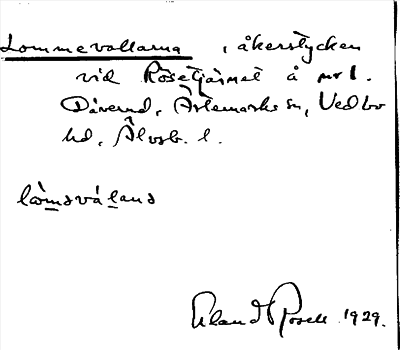 Lommevallarna, åkerstycken
vid Rösetjärnet å nr 1.
Däverud, Ärtemarks sn, Vedbo
hd, Älvsb. l.
lòmsváḷana
Erland Rosell 1929.